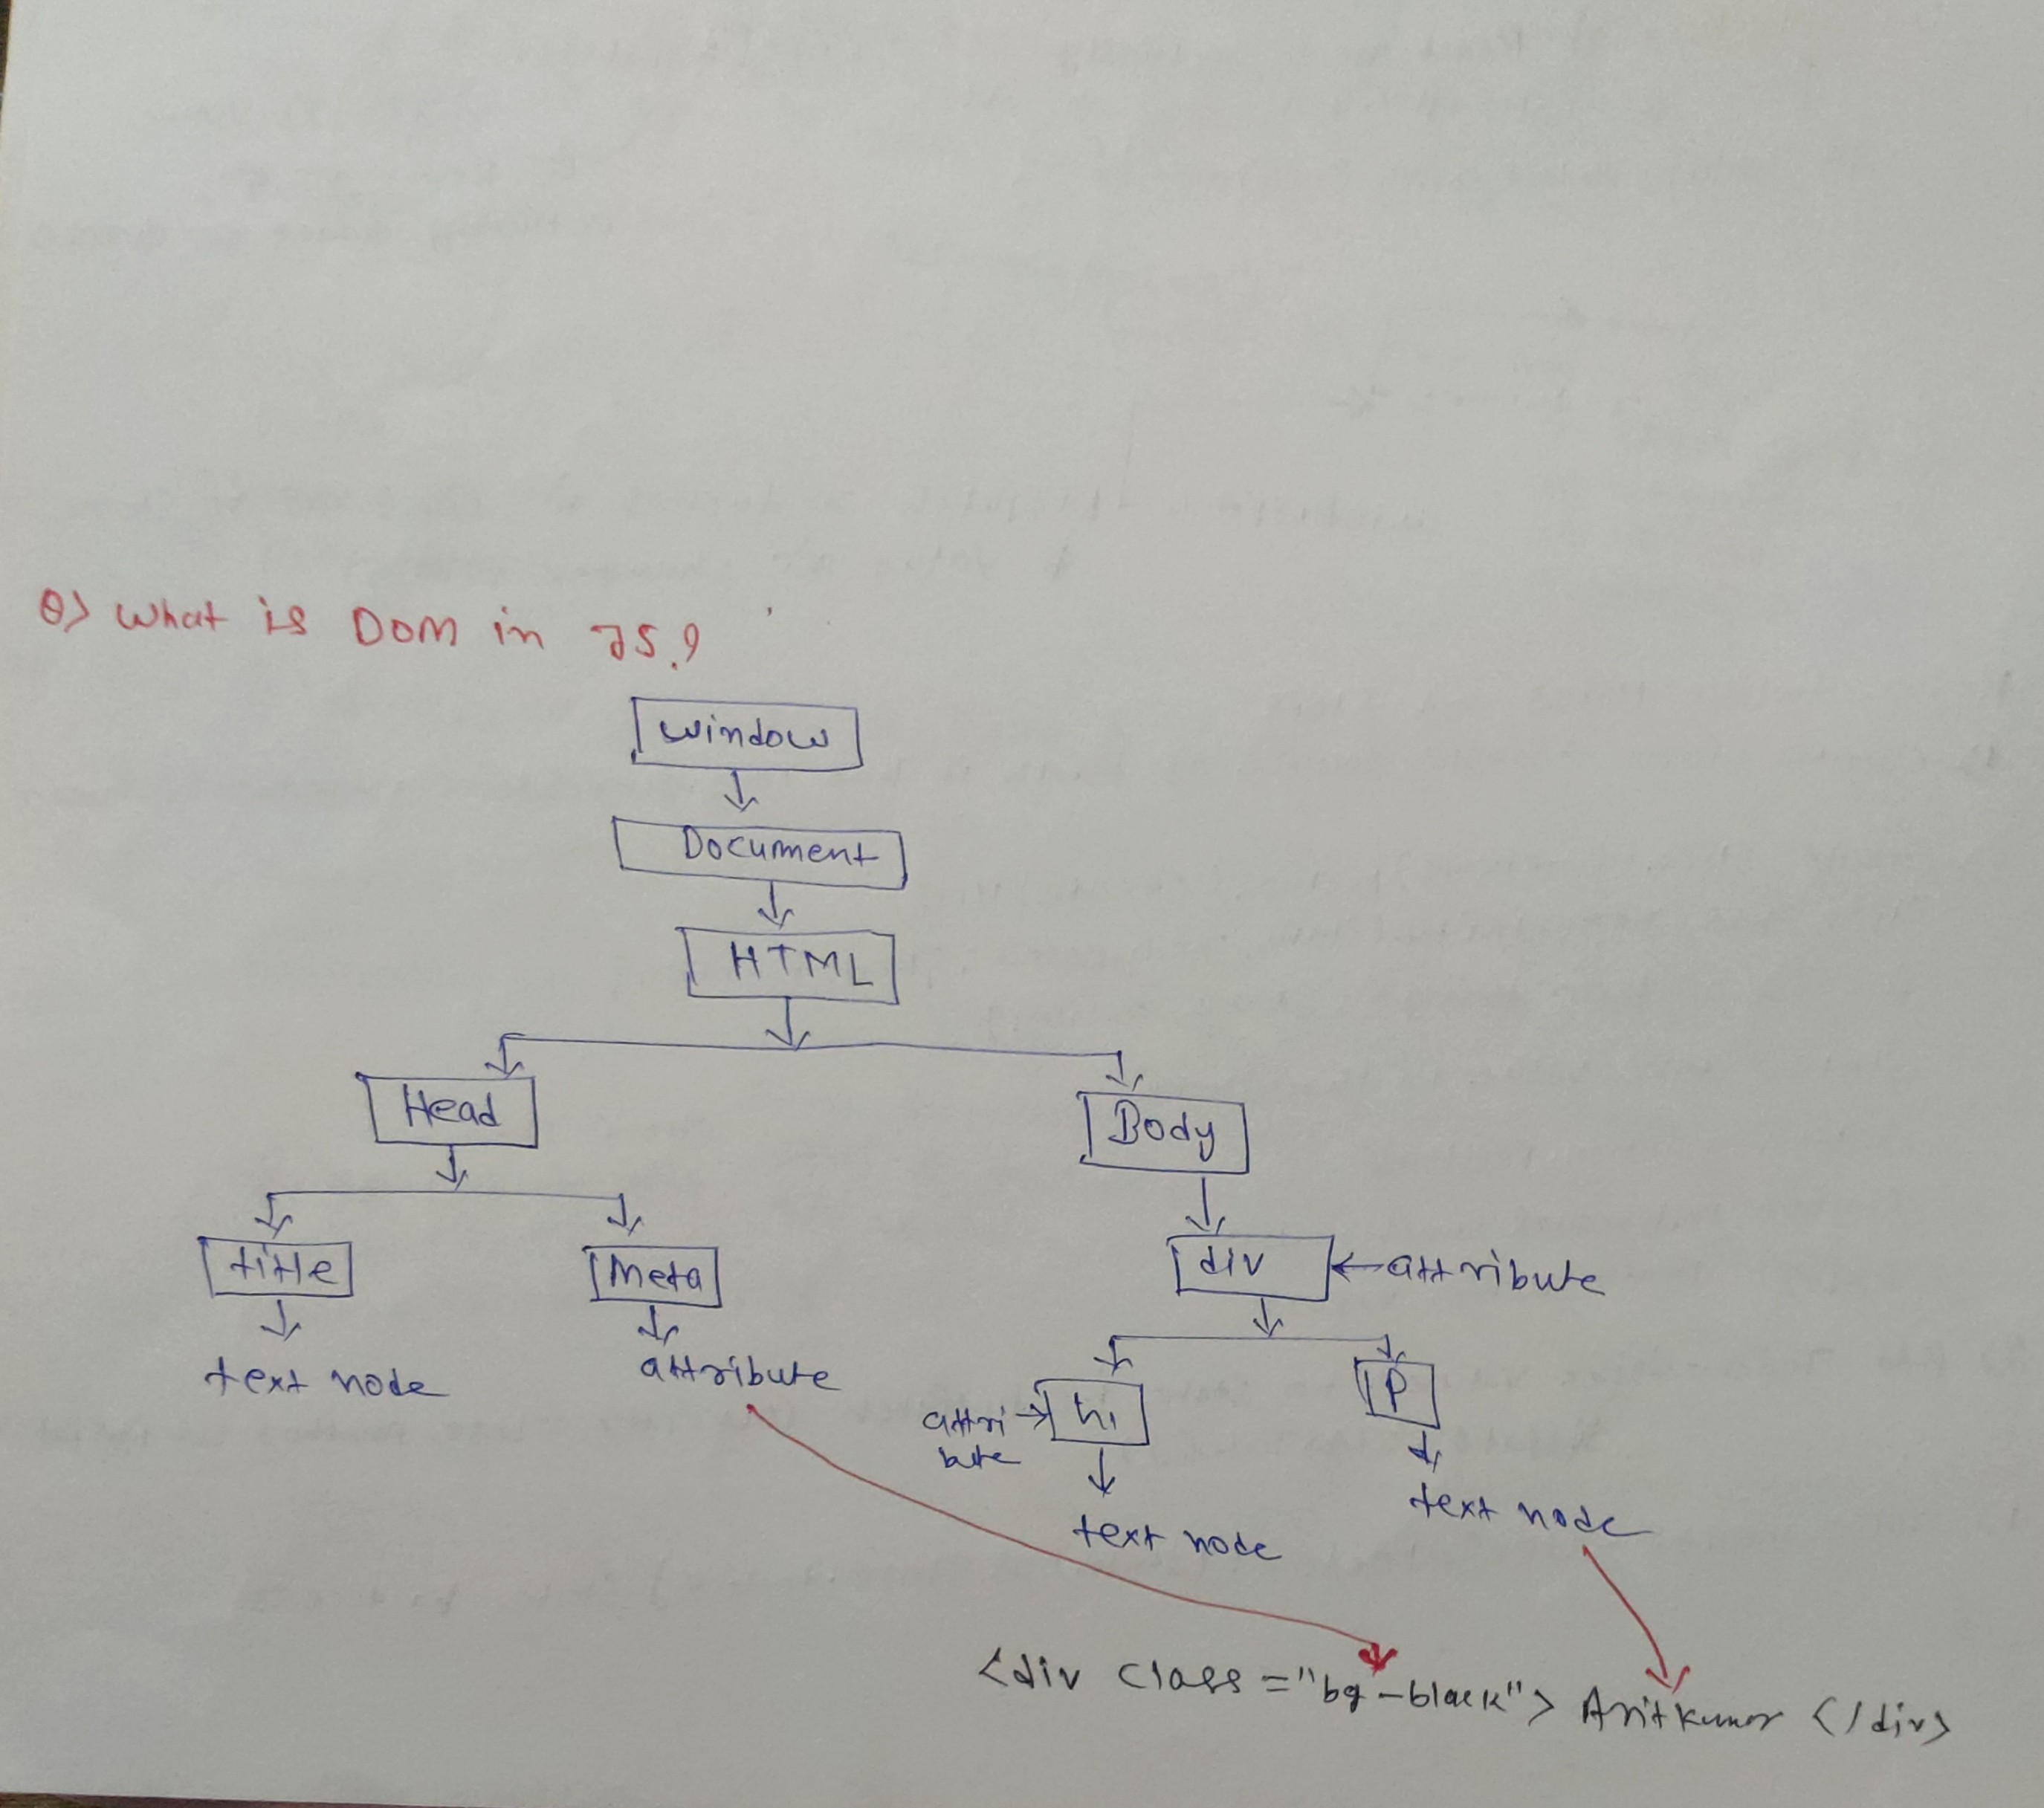 Q) What is DOM in JS?
window
Document
HTML
Head
Body
title
Meta
div
attribute
text node
attribute
attri
bute
h1
P
text node
text node
<div class="bg-black"> Aritkumar </div>